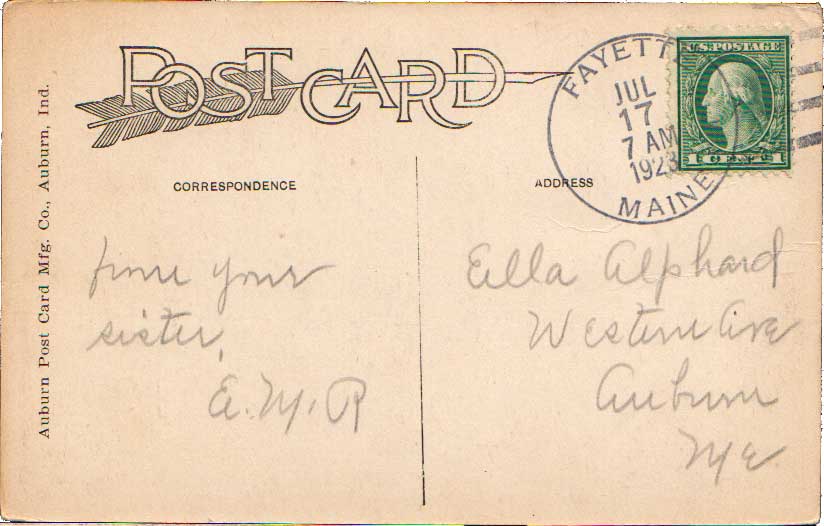 POST CARD
CORRESPONDENCE
ADDRESS
FAYETTE
JUL
17
7 AM
1923
MAINE
U.S. POSTAGE
1 CENT 1
Auburn Post Card Mfg. Co., Auburn, Ind.
from your
sister,
E. M. R
Ella Alphard
Western Ave
Auburn
Me